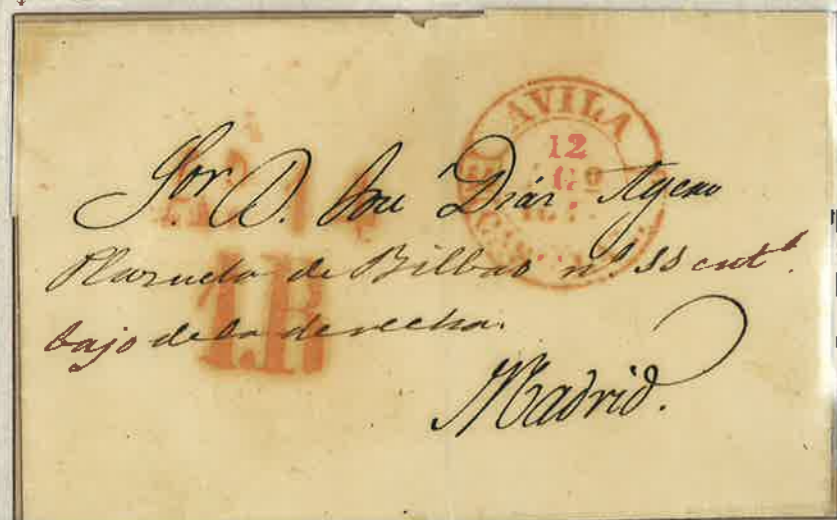 AVILA
12
AGO
Sor. D. José Diáz Agero
Plazuela de Bilbao nº 11 cutº.
bajo de la derecha.
1R
Madrid.